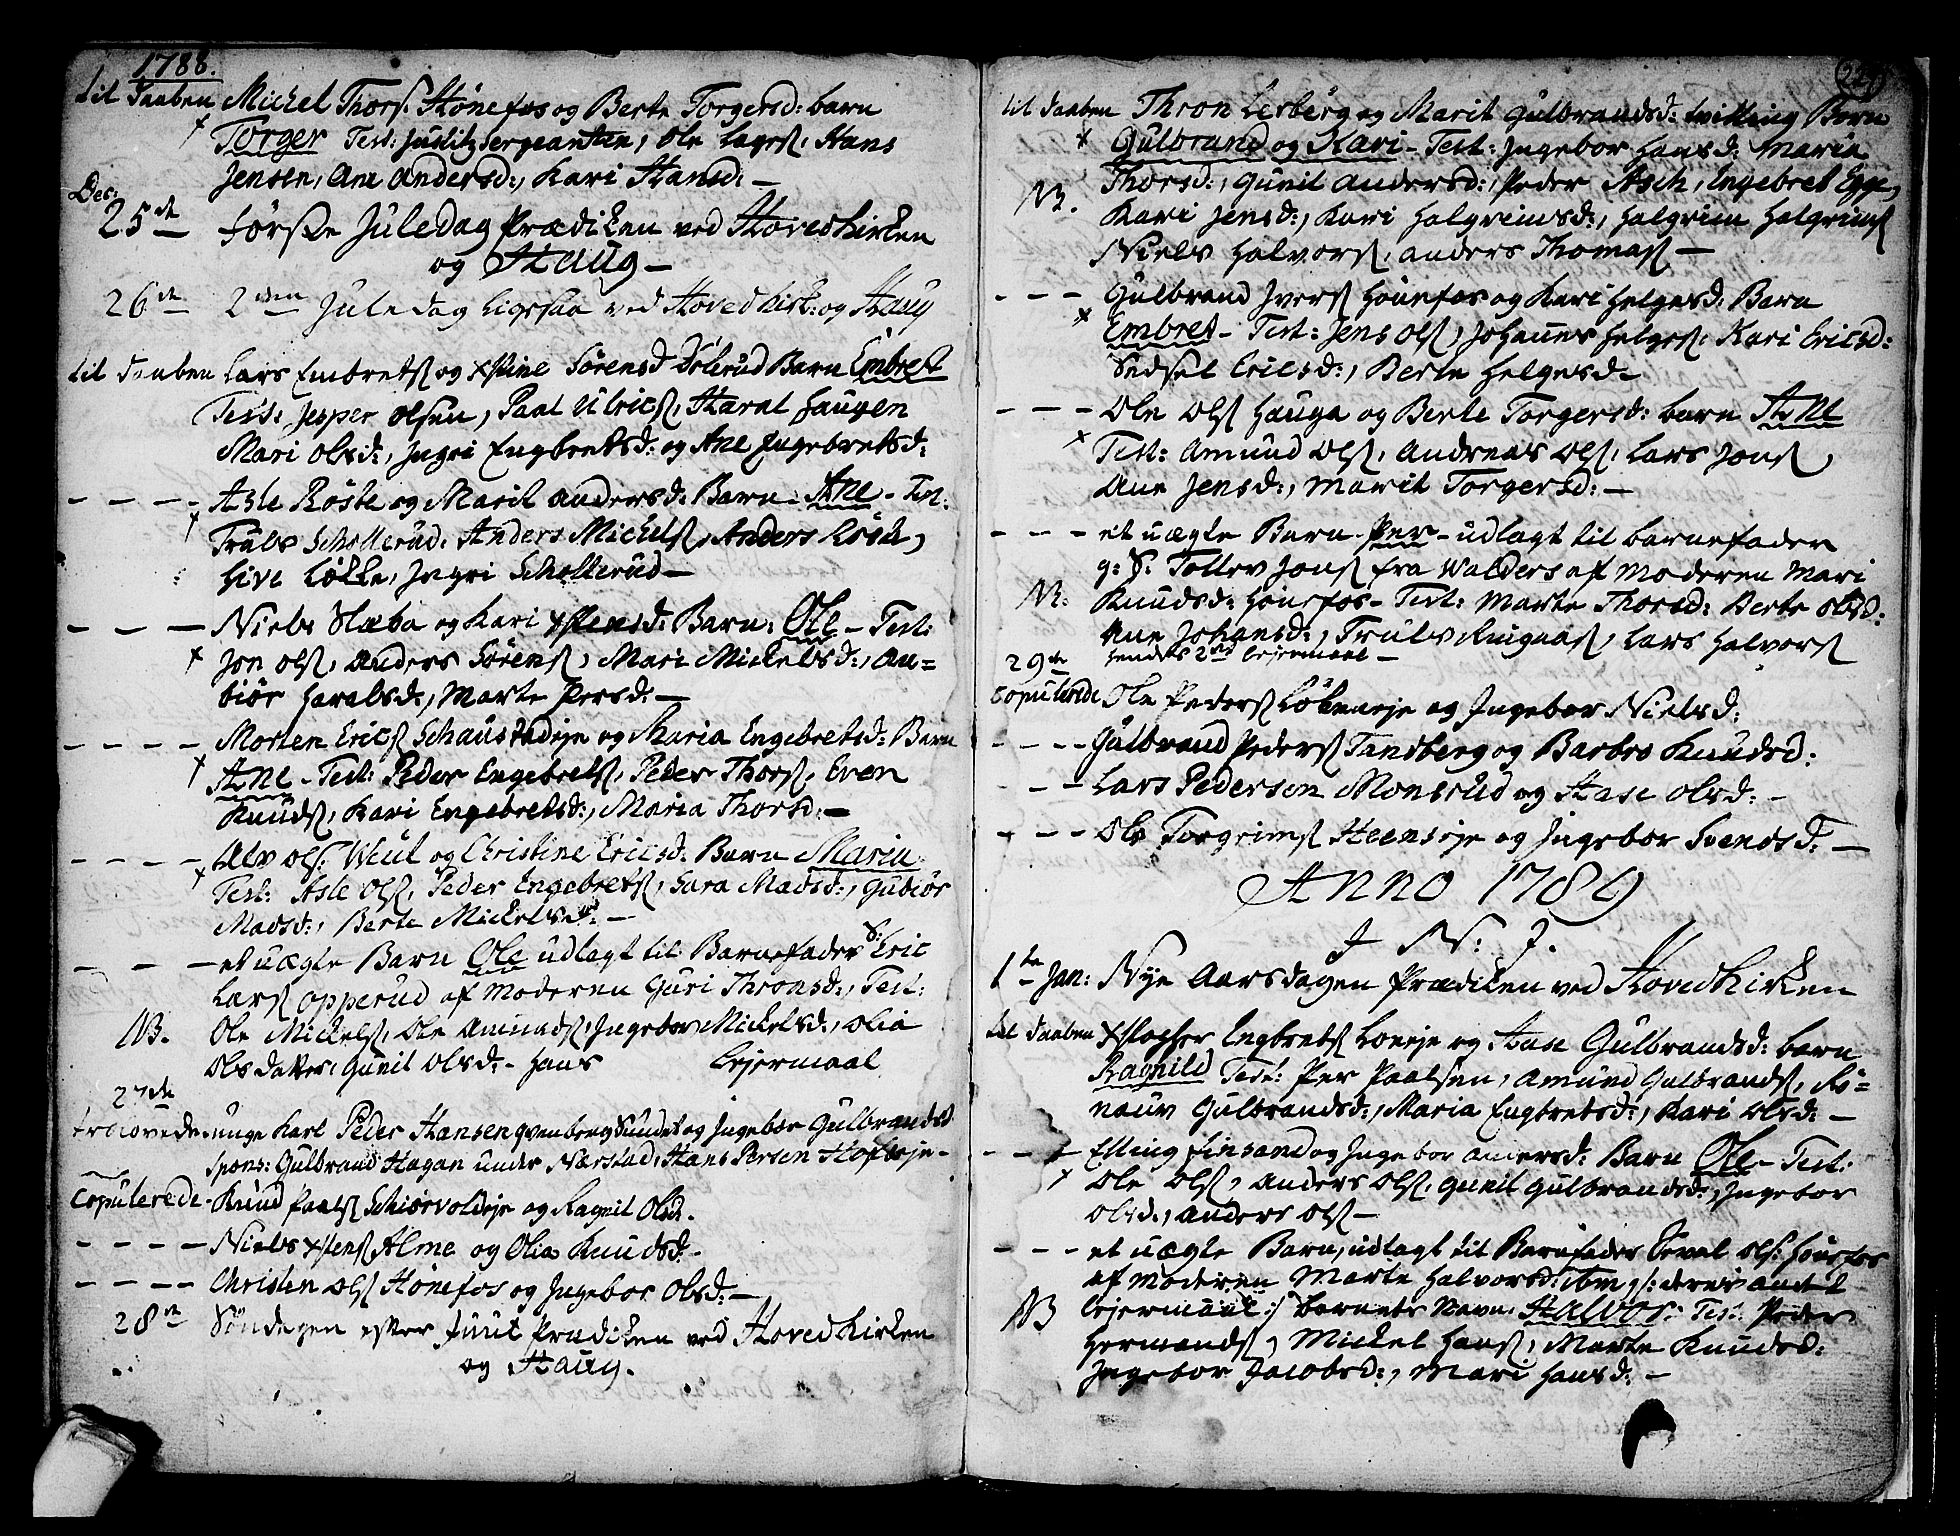 1788.
til Daaben Michel Thorsß. Hönefos og Berte Torgersd: barn
Torger Test: Justitz sergeanten, Ole Larsß, Hans
Jensen, Ane Andersd:, Kari Hansd: —
Dec:
25de förste Juledag Prædiken ved Hovedkirken
og Haug —
26de 2den Juledag ligesaa ved Hovedkirk: og Haug
til Daaben Lars Embretsß og Xstine Sörensd Barn Embret
Test: Jesper Olsen, Paal Ulricsß, Haral Haugen
Mari Olsd:, Ingri Engbretsd: og Ane Ingebretsd:
- - - - Asle Röste og Marit Andersd: Barn Ane - Test:
Truls Schollerud, Anders Michelsß, Anders
Sive Lökke, Ingri Schollerud —
- - - Niels Slæba og Kari Xstensd: Barn: Ole - Test:
Jon Olsß, Anders Sörensß, Mari Mickelsd:, An=
biör Haralsd:, Marte Persd: —
- - - - Morten Ericsß Schaustadeje og Maria Engebretsd: Barn
Ane - Test: Peder Engebretsß, Peder Thorsß, Even
Knudsß, Kari Engebretsd:, Maria Thorsd: —
- - - - Alv Olsß: Weul og Christine Ericsd: Barn Maria
Test: Asle Olsß, Peder Engebretsß, Sara Madsd:, Gubiör
Madsd:, Berte Mickelsd: —
- - - et uægte Barn Ole udlagt til Barnefader S: Eric
Larsß Opperud af Moderen Guri Thronsd:, Test:
NB. Ole Mickelsß, Ole Amundsß, Ingebor Mickelsd:, Olia
Olsdatter, Gunil Olsd: - Hans Lejermaal
27de
trolovede unge Karl Peder Hansen Qvenberg Sundet og Ingebor Gulbrandsd
Spons: Gulbrand Hagan under Nærstad, Hans Persen Hofseje -
Copulerede - Knud Paalsß Schiörvoldeje og Ragnil Olsd.
- - - - Niels Xstensß Alme og Olia Knudsd: -
- - - - Christen Olsß Hönefos og Ingebor Olsd: —
28de Söndagen efter Juul Prædiken ved Hovedkirken
og Haug.
til Daaben Thron Lerberg og Marit Gulbrandsd: tvilling Börn
Gulbrand og Kari - Test: Ingebor Hansd: Maria
Thorsd:, Gunil Andersd:, Peder Asch, Engebret Egge,
NB. Kari Jensd:, Kari Halgrimsd:, Halgrim Halgrimsß
Niels Halvorsß, Anders Thomasß —
- - - Gulbrand Iversß Hönefos og Kari Helgesd: Barn
Embret - Test: Jens Olsß, Johannes Helgesß: Kari Ericsd:
Sedsel Ericsd:, Berte Helgesd: —
- - - Ole Olsß Hauga og Berte Torgersd: barn Ane
Test: Amund Olsß, Andreas Olsß, Lars Jonsß,
Ane Jensd:, Marit Torgersd: —
- - - et uægte Barn Per - udlagt til barnefader
g: S: Tollev Jonsß fra Walders af Moderen Mari
NB. Knudsd: Hönefos - Test: Marte Thorsd: Berte Olsd:
Ane Johansd:, Truls Ringaasß, Lars Halvorsß
hendes 2det lejermaal —
29de
Copulerede Ole Pedersß Lökeneje og Ingebor Nielsd:
- - - - Gulbrand Pedersß Tandberg og Barbro Knudsd:
- - - Lars Pedersen Monsrud og Aase Olsd: -
- - - Ole Torgrimsß Heenseje og Ingebor Svendsd: —
Anno 1789
I N: J.
1te Jan: Nye Aarsdagen Prædiken ved Hovedkirken
til Daaben Xstopher Engbretsß Loeeje og Aase Gulbrandsd: barn
Ragnild Test: Per Paalsen, Amund Gulbrandsß, Rö=
nauv Gulbrandsd:, Maria Engbretsd:, Kari Olsd: —
- - - Elling Finsand og Ingebor Andersd: Barn Ole - Test:
Ole Olsß, Anders Olsß, Gunil Gulbrandsd:, Ingebor
Olsd:, Anders Olsß —
- - - et uægte Barn, udlagt til Barnefader Tovel Olsß: Hönefos
af Moderen Marte Halvorsd: ibm /: deres andet
NB lejermaal :/ barnets Navn: Halvor: Test: Peder
Hermandsß, Mickel Hansß, Marte Knudsd:
Ingebor Jacobsd:, Mari Hansd: —